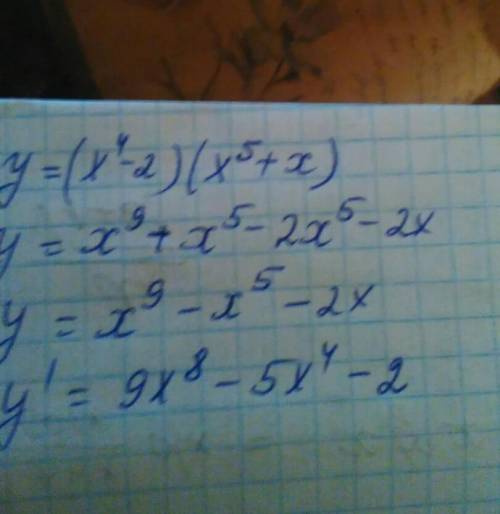 y = (x⁴-2)(x⁵+x)
y = x⁹+x⁵-2x⁵-2x
y = x⁹-x⁵-2x
y' = 9x⁸-5x⁴-2